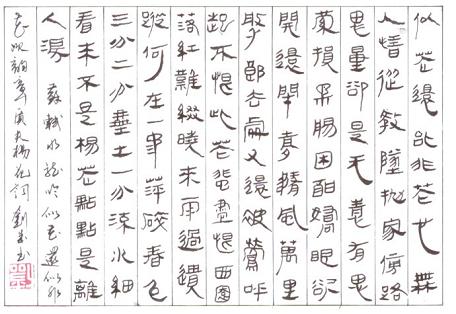 似花還似非花也無
人惜從教墜拋家傍路
思量卻是无有思
縈損柔腸困酣嬌眼欲
開還閉夢隨風萬里
尋郎去處又還被鶯呼
起不恨此花飛盡恨西園
落紅難綴曉來雨過遺
蹤何在一池萍碎春色
三分二分塵土一分流水細
看來不是楊花點點是離
人淚 蘇軾水龍吟似花還似非
花次韻章質夫楊花詞 劉書